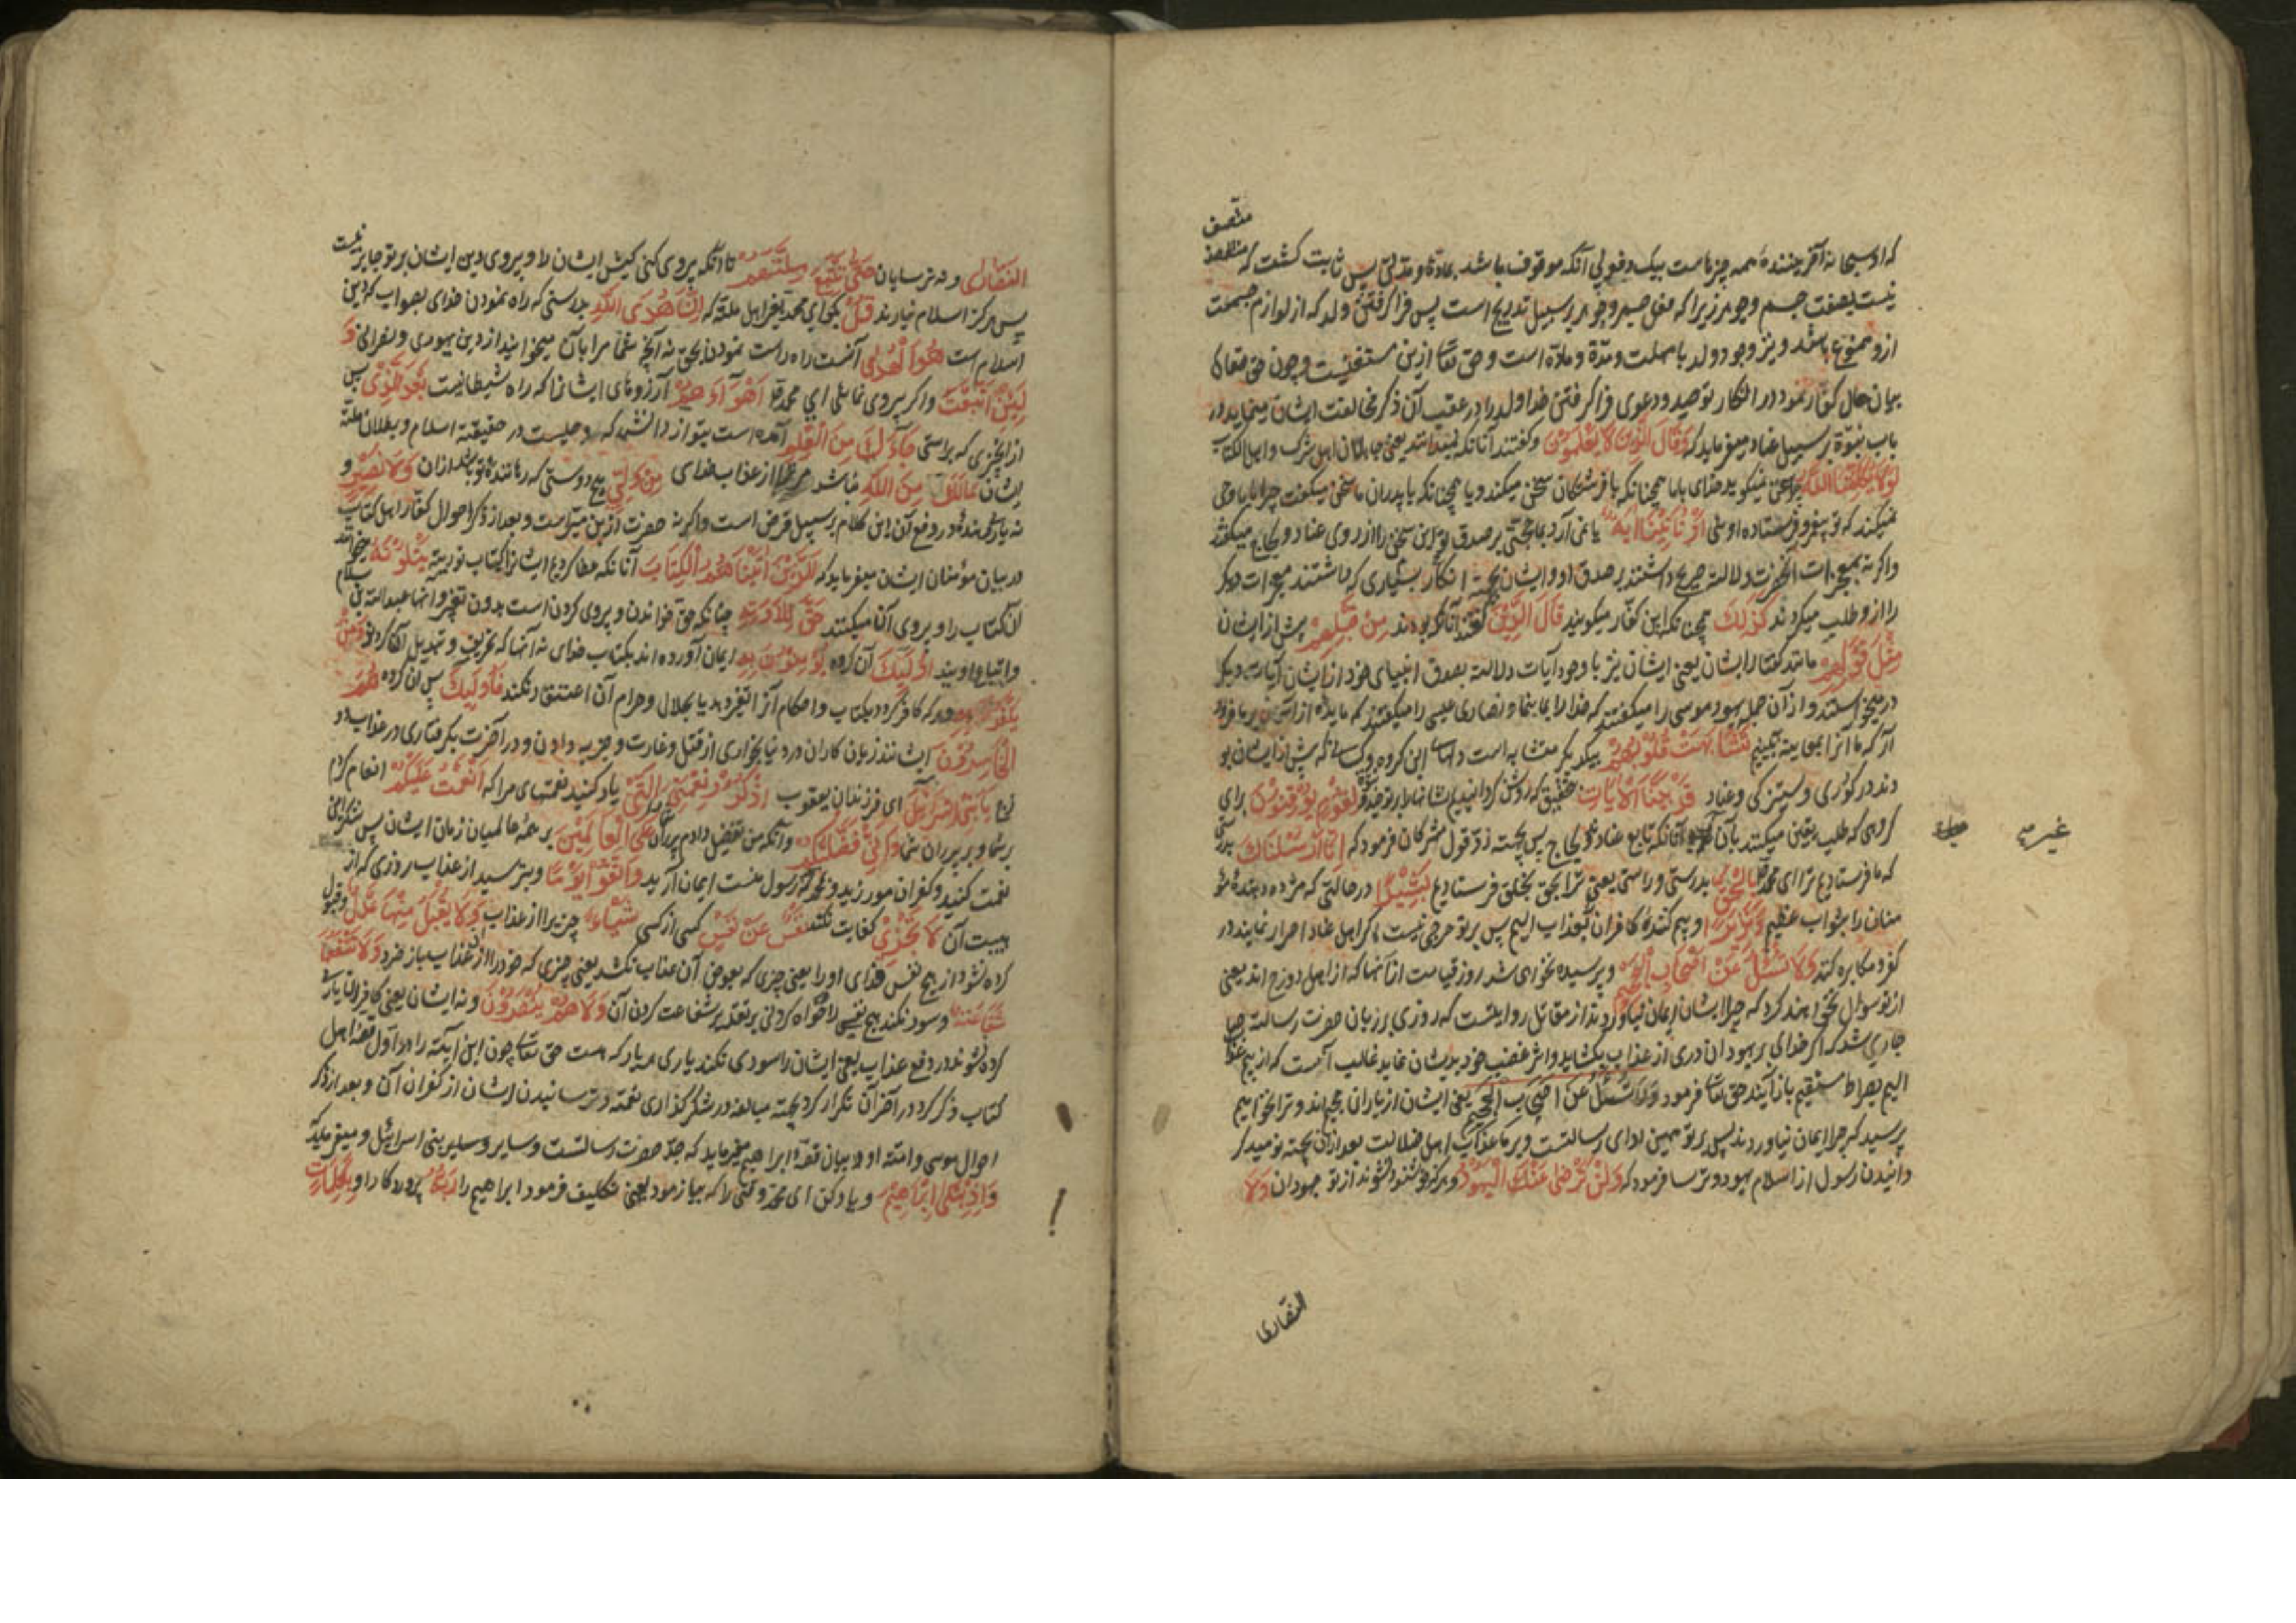 متصف
که او سبحانه آفریننده همه چیزهاست بیک دفعه بی آنکه موقوف باشد بماده و مدتی پس ثابت کشت که
نیست بصفت جسم و جوهر زیرا که فعل جسم و جوهر بر سبیل تدریج است پس فرا کرفتن ولد که از لوازم جسمست
ازو ممتنع باشد و نیز وجود ولد با مهلت و مدة و ماده است و حق تعا ازین مستغنیست و چون حق تعالی
بیان حال کفار نمود در انکار توحید و دعوی فرا کرفتن خدا ولد را در عقب آن ذکر مخالفت ایشان مینماید در
باب نبوة بر سبیل عناد میفرماید که وَقَالَ الَّذِینَ لَا یَعْلَمُونَ و کفتند آنانکه نمیدانند یعنی جاهلان اهل شرک و اهل الکتاب
لَوْلَا یُکَلِّمُنَا اللَّهُ چرا سخن نمیکوید خدای باما همچنانکه با فرشتکان سخن میکند و یا همچنانکه با پدران ما سخن میکفت چرا باما وحی
نمیکند که تو پیغمبر و فرستاده اوئی اَوْ تَأْتِینَا آیَةٌ یا نمی آرد بما حجتی بر صدق تو این سخن را از روی عناد و لجاج میکفتند
واکرنه معجزات آنحضرت دلالت صریح داشتند بر صدق او و ایشان بجهة انکار بسیاری که داشتند معجزات دیکر
را ازو طلب میکردند کَذَلِکَ همچنانکه این کفار میکویند قَالَ الَّذِینَ کفتند آنانکه بودند مِنْ قَبْلِهِمْ پیش از ایشان
مِثْلَ قَوْلِهِمْ مانند کفتار ایشان یعنی ایشان نیز با وجود آیات دلالت بصدق انبیای خود از ایشان آیات دیکر
در میخواستند و از آن جمله یهود موسی را میکفتند که خدا را بما بنما و نصاری عیسی را میکفتند که مایده از آسمان بر ما فرود
آر که ما آنرا بمعاینه ببینیم تَشَابَهَتْ قُلُوبُهُمْ بیکدیکر متشابه است دلهای این کروه و کسانی که پیش از ایشان بو
دند در کوری و ستیزکی و عناد قَدْ بَیَّنَّا الْآیَاتِ بتحقیق که روشن کردانیدیم نشانهارا بر توحید لِقَوْمٍ یُوقِنُونَ برای
کروهی که طلب یقین میکنند بآن آنانکه تابع عناد و لجاج پس بجهته رد قول مشرکان فرمود که اِنَّا اَرْسَلْنَاکَ بدرستی
غیر
که ما فرستادیم ترا ای محمد بِالْحَقِّ بدرستی و راستی یعنی ترا بحق بخلق فرستادیم بَشِیرًا در حالتی که مژده دهنده مؤ
منان را بثواب عظیم وَنَذِیرًا و بیم کننده کافران بعذاب الیم پس بر تو حرجی نیست اکر اهل عناد اصرار نمایند در
کفر و مکابره کنند وَلَا تُسْئَلُ عَنْ اَصْحَابِ الْجَحِیمِ و پرسیده نخواهی شد روز قیامت از آنها که از اهل دوزخ اند یعنی
از تو سوال نخواهند کرد که چرا ایشان ایمان نیاوردند از مقاتل روایتست که روزی بر زبان حضرت رسالت
جاری شد که اکر خدای بر یهودان دری از عذاب بکشاید و اثر غضب خود بدیشان نماید غالب آنست که از بیم عذاب
الیم بصراط مستقیم باز آیند حق تعا فرمود وَلَا تُسْئَلُ عَنْ اَصْحَابِ الْجَحِیمِ یعنی ایشان از یاران جحیم اند و ترا نخواهیم
پرسید که چرا ایمان نیاوردند پس بر تو همین ادای رسالتست و بر ما عذاب اهل ضلالت بعد از آن بجهته نومید کر
دانیدن رسول از اسلام یهود و ترسا فرمود که وَلَنْ تَرْضَی عَنْکَ الْیَهُودُ و هرکز خوشنود نشوند از تو جهودان وَلَا
النصاری
النَّصَارَی و نه ترسایان حَتَّی تَتَّبِعَ مِلَّتَهُمْ تا آنکه پیروی کنی کیش ایشان را و پیروی دین ایشان بر تو جایز نیست
پس هرکز اسلام نیارند قُلْ بکو ای محمد بغیر اهل ملة که اِنَّ هُدَی اللَّهِ بدرستی که راه نمودن خدای بصواب که دین
اسلام است هُوَ الْهُدَی آنست راه راست نمودن بحق نه آنچه شما مرا بآن میخوانید از دین یهودی و نصرانی وَ
لَئِنِ اتَّبَعْتَ واکر پیروی نمائی ای محمد اَهْوَآءَهُمْ آرزوهای ایشانرا که راه شیطانیست بَعْدَ الَّذِی پس
از آنچیزی که براستی جَآءَکَ مِنَ الْعِلْمِ آمده است بتو از دانش که وحیست در حقیقة اسلام و بطلان ملة
ایشان مَالَکَ مِنَ اللَّهِ نباشد مر ترا از عذاب خدای مِنْ وَلِیٍّ هیچ دوستی که رهاننده تو باشد از آن وَلَا نَصِیرٍ و
نه یاری دهنده در دفع آن این کلام بر سبیل فرض است واکرنه حضرت ازین مبراست و بعد از ذکر احوال کفار اهل کتاب
در بیان مؤمنان ایشان میفرماید که اَلَّذِینَ آتَیْنَاهُمُ الْکِتَابَ آنانکه عطا کردیم ایشانرا کتاب توریة یَتْلُونَهُ میخوانند
آن کتاب را و پیروی آن میکنند حَقَّ تِلَاوَتِهِ چنانکه حق خواندن و پیروی کردن است بدون تغیر و آنها عبدالله بن سلام
و اتباع او یند اُولَئِکَ آن کروه یُؤْمِنُونَ بِهِ ایمان آورده اند بکتاب خدای نه آنها که تحریف و تبدیل آن کردند وَمَنْ
یَکْفُرْ بِهِ و هر که کافر کردد بکتاب و احکام آنرا تغیر دهد یا بحلال و حرام آن اعتقاد نکند فَاُولَئِکَ پس آن کروه هُمُ
الْخَاسِرُونَ ایشانند زیان کاران در دنیا بخواری از قتل و غارت و جزیه دادن و در آخرت بکرفتاری در عذاب دو
زخ یَا بَنِی اِسْرَائِیلَ ای فرزندان یعقوب اذْکُرُوا نِعْمَتِیَ الَّتِی یاد کنید نعمتهای مرا که اَنْعَمْتُ عَلَیْکُمْ انعام کردم
بر شما و بر پدران شما وَاَنِّی فَضَّلْتُکُمْ و آنکه من تفضیل دادم پدران شما عَلَی الْعَالَمِینَ بر همه عالمیان زمان ایشان پس شکر این
نعمت کنید و کفران مورزید و بمحمد که رسول منست ایمان آرید وَاتَّقُوا یَوْمًا و بترسید از عذاب روزی که از
هیبت آن لَا تَجْزِی کفایت نکند نَفْسٌ عَنْ نَفْسٍ کسی از کسی شَیْئًا چیزیرا از عذاب وَلَا یُقْبَلُ مِنْهَا عَدْلٌ و قبول
کرده نشود از هیچ نفس فدای او را یعنی چیزی که بعوض آن عذاب نکشد یعنی چیزی که خود را از عذاب باز خرد وَلَا تَنْفَعُهَا
شَفَاعَةٌ و سود نکند هیچ نفسی را شفاعت کردن آن وَلَا هُمْ یُنْصَرُونَ و نه ایشان یعنی کافران یاری
کرده شوند در دفع عذاب یعنی ایشان را سودی نکند یاری هر یار که هست حق تعا چون این آیة را در اول قصه اهل
کتاب ذکر کرد در آخر آن تکرار کرد بجهته مبالغه در شکر کذاری نعمة و ترسانیدن ایشان از کفران آن و بعد از ذکر
احوال موسی و امته او در بیان قصه ابراهیم میفرماید که جد حضرت رسالتست و سایر بنی اسرائیل و میفرماید که
وَاِذِ ابْتَلَی اِبْرَاهِیمَ و یاد کن ای محمد وقتی را که بیازمود یعنی تکلیف فرمود ابراهیم را رَبُّهُ پروردکار او بِکَلِمَاتٍ